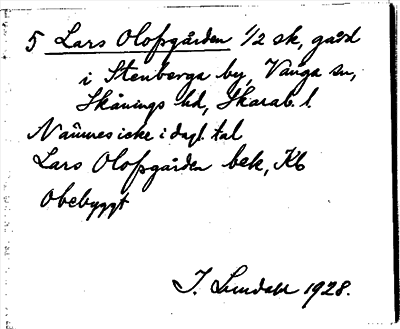 5 Lars Olofsgården 1/2 sk, gård
i Stenberga by, Vånga sn,
Skånings hd, Skarab. l
Nämnes icke i dagl. tal
Lars Olofsgården bek, Kb
Obebyggt
J. Lundahl 1928.